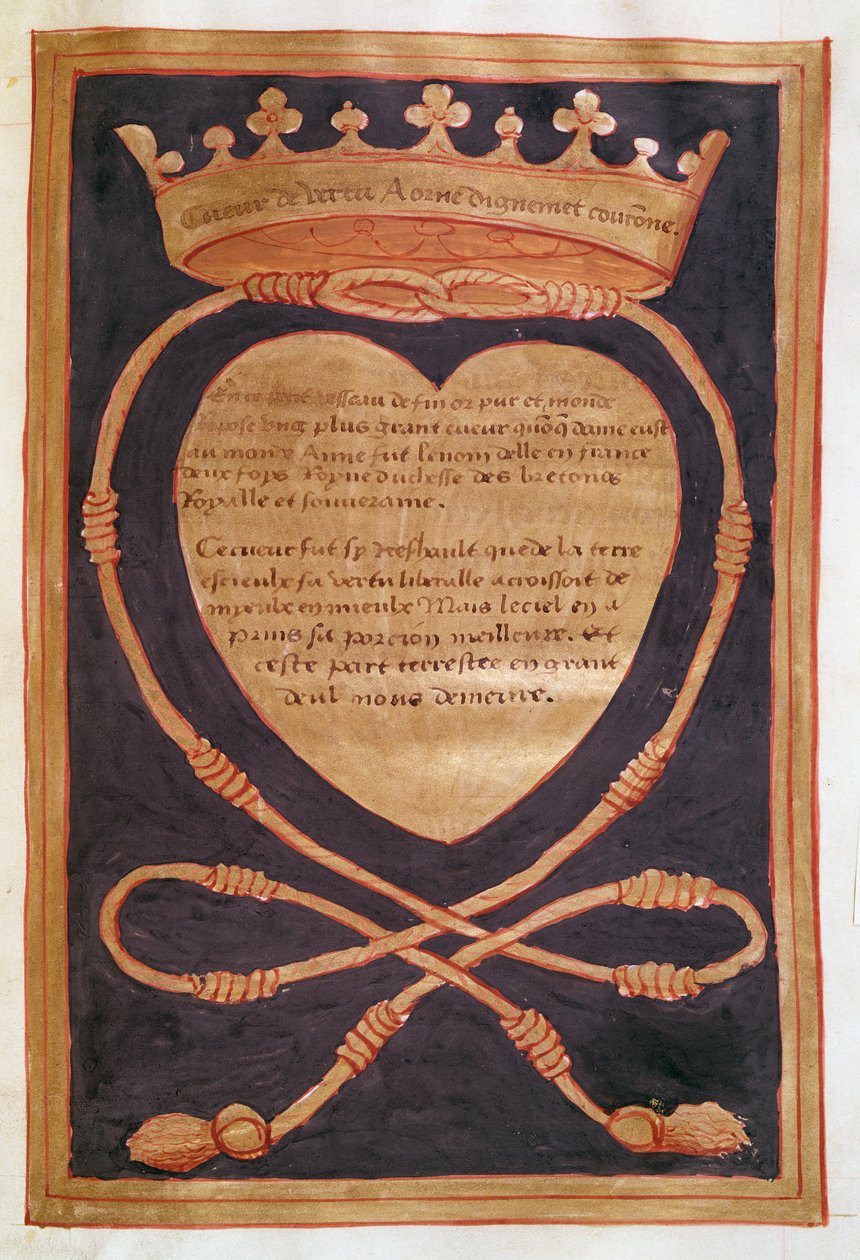 Cueur de vertu Aorne dignemet courone.
En ce petit vesseau de fin or pur et monde
Repose ung plus grant cueur quonq dame eust
au monde Anne fut lenom delle en france
deux foys Royne duchesse des bretons
Royalle et souveraine.
Ce cueur fut sy treshault que de la terre
es cieulx sa vertu liberalle acroissoit de
myeulx en mieulx Mais le ciel en a
prins sa porcion meilleure. Et
ceste part terrestre en grant
deul nous demeure.